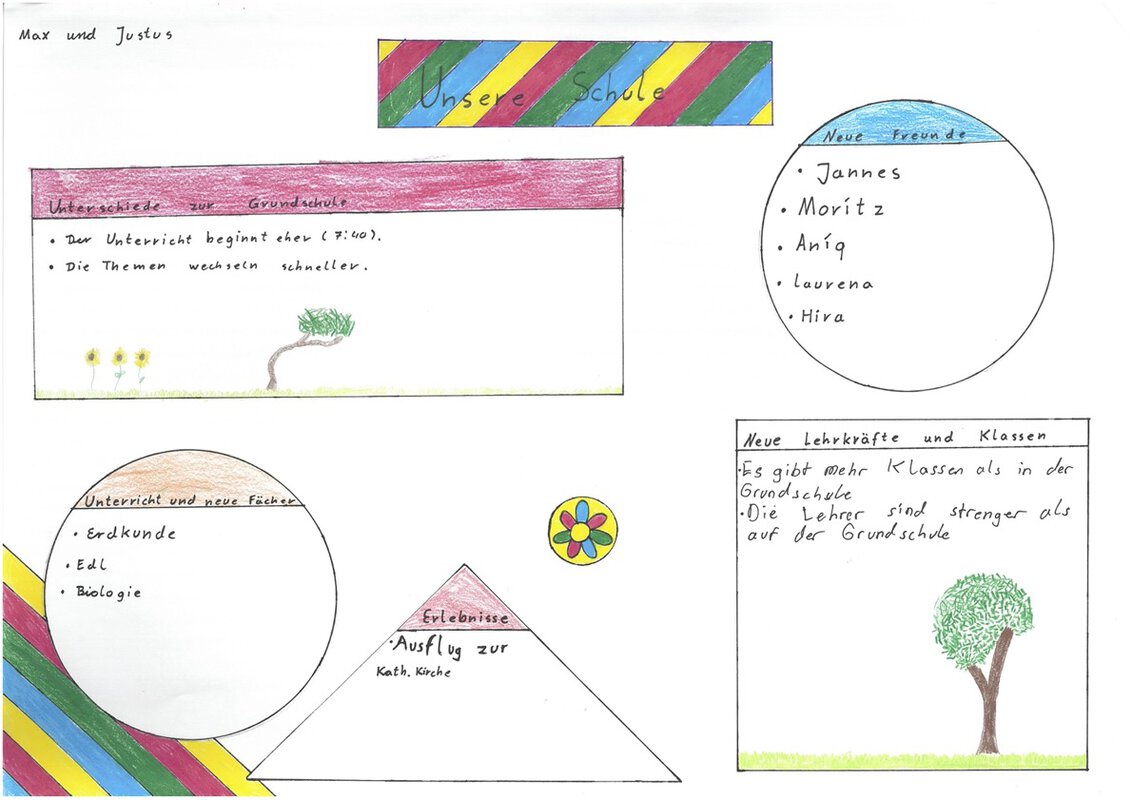 Max und Justus
Unsere Schule
Neue Freunde
• Jannes
• Moritz
• Aniq
• Laurena
• Hira
Unterschiede zur Grundschule
• Der Unterricht beginnt eher (7:40).
• Die Themen wechseln schneller.
Neue Lehrkräfte und Klassen
• Es gibt mehr Klassen als in der
Grundschule
• Die Lehrer sind strenger als
auf der Grundschule
Unterricht und neue Fächer
• Erdkunde
• Edl
• Biologie
Erlebnisse
• Ausflug zur
Kath. Kirche